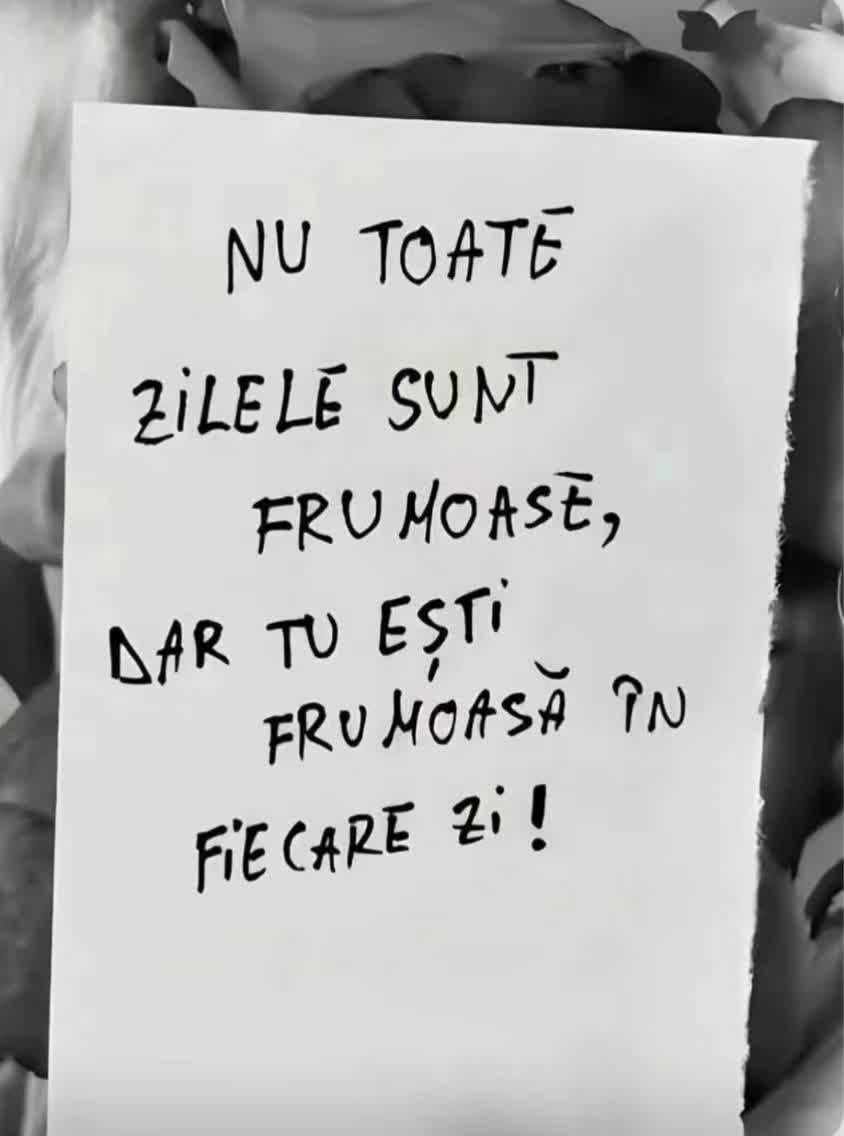 NU TOATE
ZILELE SUNT
FRUMOASE,
DAR TU EȘTI
FRUMOASĂ ÎN
FIECARE ZI!